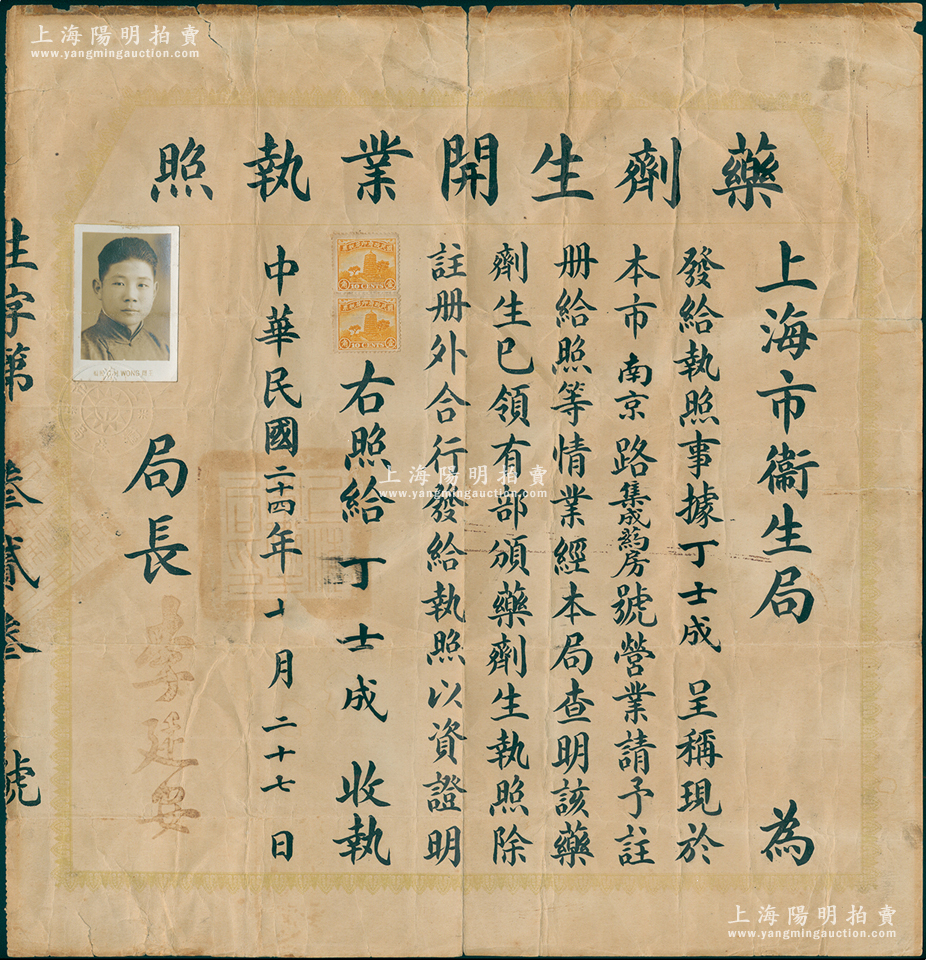 上海陽明拍賣
www.yangmingauction.com
藥劑生開業執照
上海市衞生局 為
發給執照事據丁士成 呈稱現於
本市南京路集成葯房號營業請予註
册給照等情業經本局查明該藥
劑生已領有部頒藥劑生執照除
註册外合行發給執照以資證明
右照給丁士成 收執
10 CENTS
10 CENTS
中華民國二十四年十月二十七日
局長 李廷安
WONG
生字第叁貳叁號
上海陽明拍賣
www.yangmingauction.com
上海陽明拍賣
www.yangmingauction.com